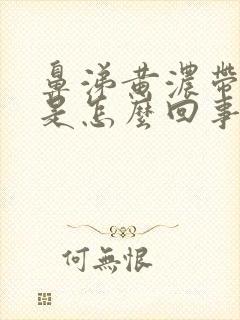 鼻涕黄濃帶
是怎麼回事
何無恨